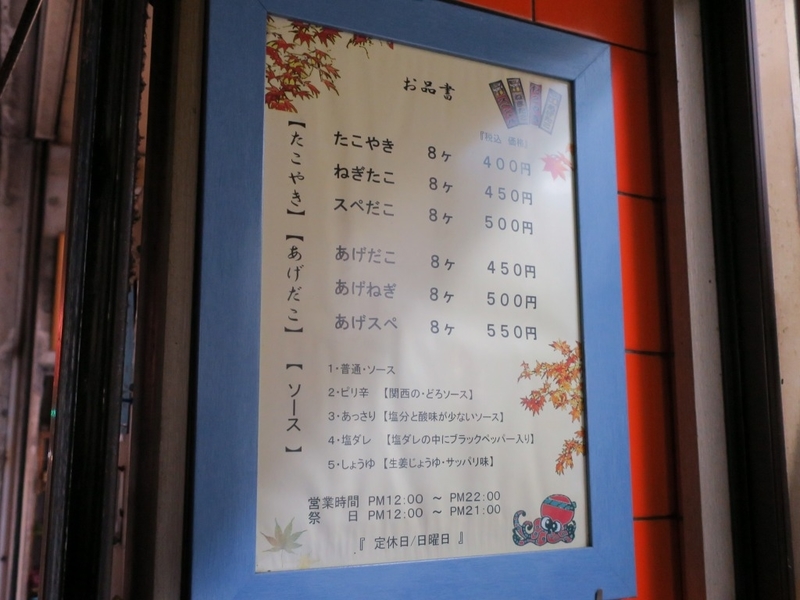 お品書
『税込 価格』
【たこやき】
たこやき 8ヶ 400円
ねぎたこ 8ヶ 450円
スペだこ 8ヶ 500円
【あげだこ】
あげだこ 8ヶ 450円
あげねぎ 8ヶ 500円
あげスペ 8ヶ 550円
【ソース】
1・普通・ソース
2・ピリ辛 【関西の・どろソース】
3・あっさり【塩分と酸味が少ないソース】
4・塩ダレ 【塩ダレの中にブラックペッパー入り】
5・しょうゆ【生姜じょうゆ・サッパリ味】
営業時間 PM12:00 ～ PM22:00
祭 日 PM12:00 ～ PM21:00
『 定休日/日曜日 』